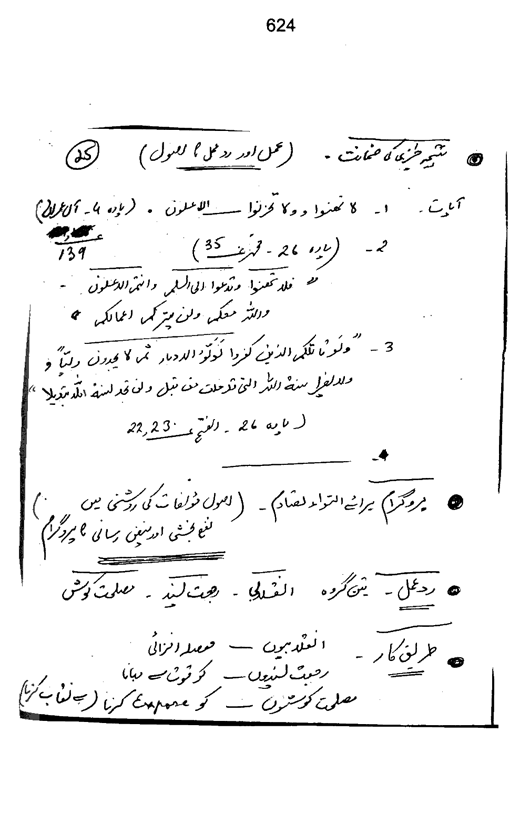 624
نتیجہ خیزی کی ضمانت - (عمل اور ردعمل کا اصول) 25
آیات - 1- لا تھنوا ولا تحزنوا — الاعلون - (پارہ 4 - آل عمران)
139
2- (پارہ 26 - محمدؐ 35)
فلا تھنوا وتدعوا الی السلم وانتم الاعلون -
واللہ معکم ولن یترکم اعمالکم
3- "ولو قاتلکم الذین کفروا لولّوا الادبار ثم لا یجدون ولیّاً و
ولا نصیرا سنۃ اللہ التی قد خلت من قبل ولن تجد لسنۃ اللہ تبدیلا"
(پارہ 26 - الفتح 22,23)
4-
پروگرام برائے التواء تصادم - (اصول مؤلفات کی روشنی میں)
نفع بخشی اور فیض رسانی کا پروگرام
ردعمل - تین گروہ انقلابی - رجعت پسند - مصلحت کوش
طریق کار - انقلابیوں — حوصلہ افزائی
رجعت پسندوں — کو قوت سے دبانا
مصلحت کوشوں — کو Expose کرنا (بے نقاب کرنا)